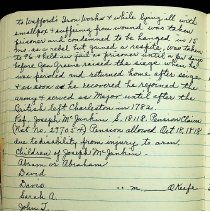 to Wofford's Iron Works & while lying ill with
smallpox & suffering from wound was taken
prisoner and condemned to be hanged in 15
ms. as a rebel but gained a respite, was taken
to 96 & held as first as prisoner until a few days
before Gen Green raised the siege when he
was paroled and returned home after seige
& as soon as he recovered he rejoined the
army & served as Major until after the
British left Charleston in 1782.
Cap. Joseph McJunkin S. 18118. Pension Claim
(Rat No. 2705 +) Pension allowed Oct 18, 1818
due to disability, from injury to arm.
Children of Joseph McJunkin
Abram or Abraham
David
Davis " m. O'Keefe
Sarah A.
John T.